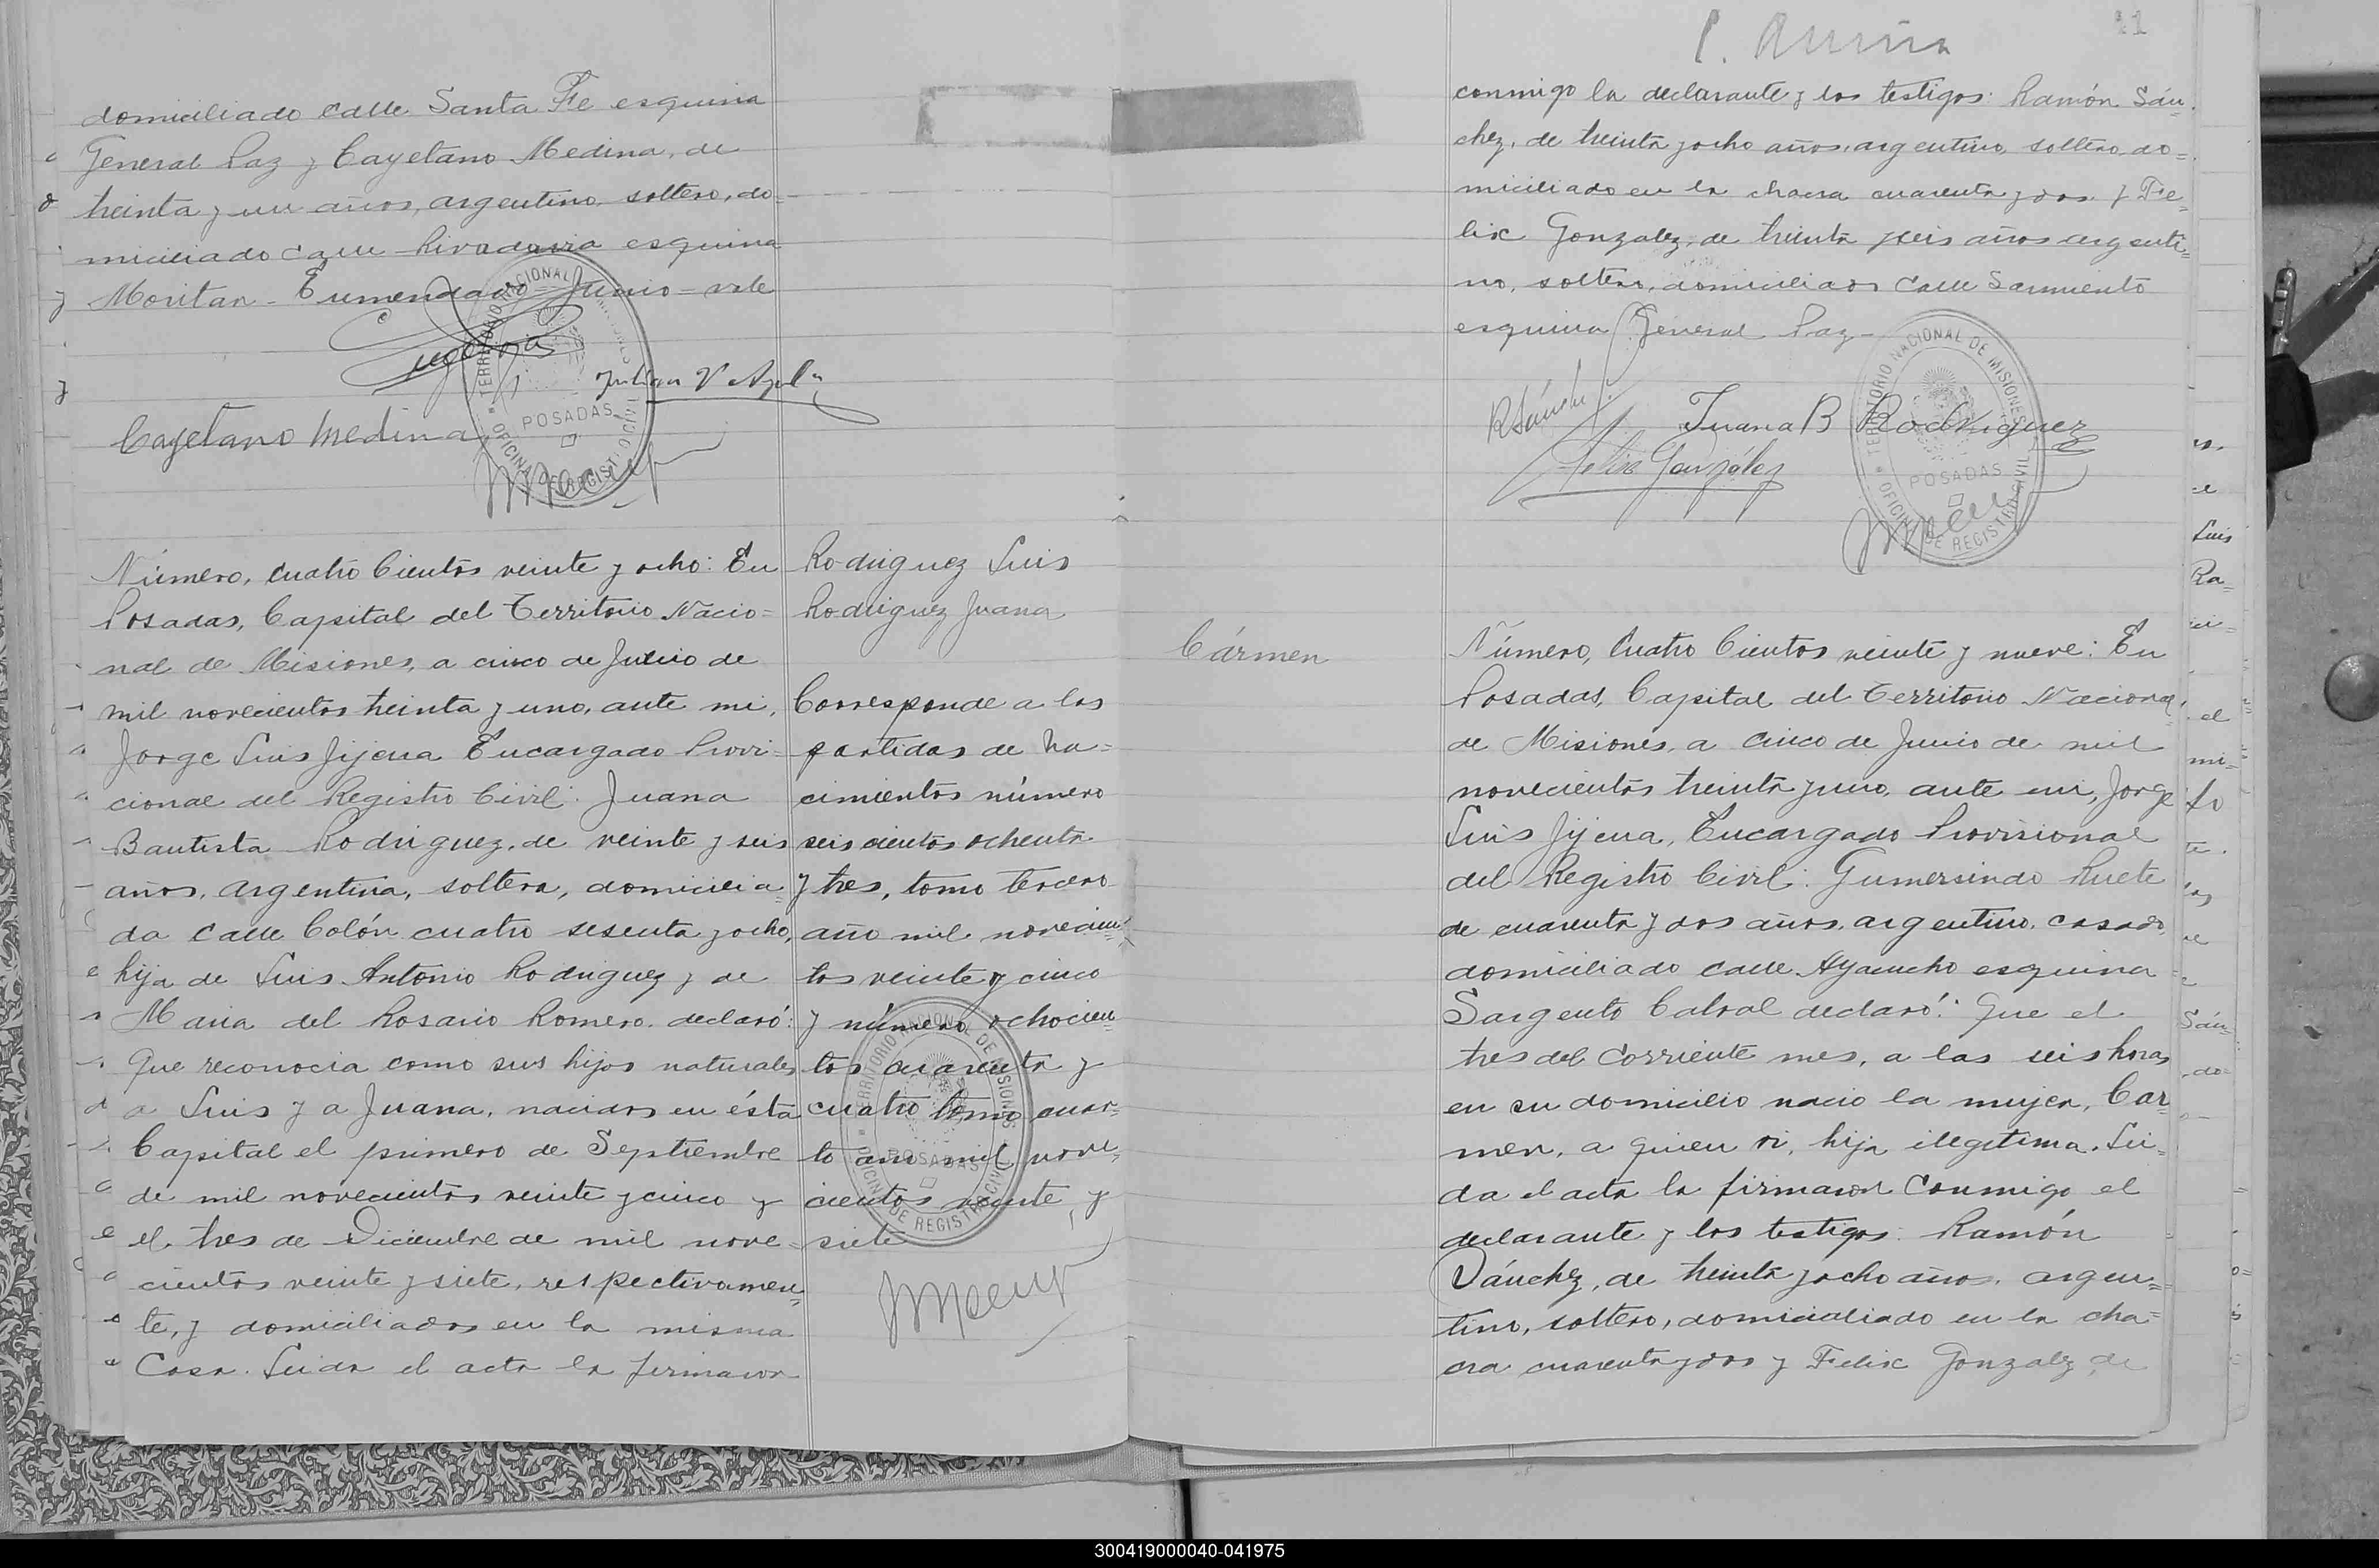 domiciliado calle Santa Fe esquina
General Paz y Cayetano Medina, de
treinta y un años, argentino, soltero, do=
miciliado calle Rivadavia esquina
Moritan - Enmendado - Junio - vale
Julian V Ayala
Cayetano Medina
TERRITORIO NACIONAL DE MISIONES
POSADAS
OFICINA DE REGISTRO CIVIL
Número, Cuatro Cientos veinte y ocho: En
Posadas, Capital del Territorio Nacio=
nal de Misiones, a cinco de Junio de
mil novecientos treinta y uno, ante mi,
Jorge Luis Jijena Encargado Provi=
cional del Registro Civil: Juana
Bautista Rodriguez, de veinte y seis
años, argentina, soltera, domicilia=
da calle Colón cuatro sesenta y ocho,
hija de Luis Antonio Rodriguez y de
Maria del Rosario Romero, declaró:
Que reconocia como sus hijos naturales
a Luis y a Juana, nacidos en ésta
Capital el primero de Septiembre
de mil novecientos veinte y cinco y
el tres de Diciembre de mil nove=
cientos veinte y siete, respectivamen=
te, y domiciliados en la misma
Casa. Leida el acta la firmaron
Rodriguez Luis
Rodriguez Juana
Corresponde a las
partidas de Na=
cimientos número
seis cientos ochenta
y tres, tomo tercero
año mil novecien=
tos veinte y cinco
y número ochocien
tos cuarenta y
cuatro tomo cuar=
to año mil nove=
cientos veinte y
siete
TERRITORIO NACIONAL DE MISIONES
POSADAS
OFICINA DE REGISTRO CIVIL
conmigo la declarante y los testigos: Ramón Sán=
chez, de treinta y ocho años, argentino, soltero, do=
miciliado en la chacra cuarenta y dos y Fe=
lix Gonzalez, de treinta y seis años argenti=
no, soltero, domiciliado calle Sarmiento
esquina General Paz
R Sánchez
Juana B Rodriguez
Felix González
TERRITORIO NACIONAL DE MISIONES
POSADAS
OFICINA DE REGISTRO CIVIL
Cármen
Número, Cuatro Cientos veinte y nueve: En
Posadas, Capital del Territorio Nacional
de Misiones, a cinco de Junio de mil
novecientos treinta y uno, ante mi, Jorge
Luis Jijena, Encargado Provisional
del Registro Civil: Gumersindo Ruete
de cuarenta y dos años, argentino, casado
domiciliado calle Ayacucho esquina
Sargento Cabral declaró: Que el
tres del corriente mes, a las seis horas
en su domicilio nacio la mujer, Car=
men, a quien vi, hija ilegitima. Lei=
da el acta la firmaron conmigo el
declarante y los testigos: Ramón
Sánchez, de treinta y ocho años, argen=
tino, soltero, domiciliado en la cha=
cra cuarenta y dos y Felix Gonzalez, de
300419000040-041975